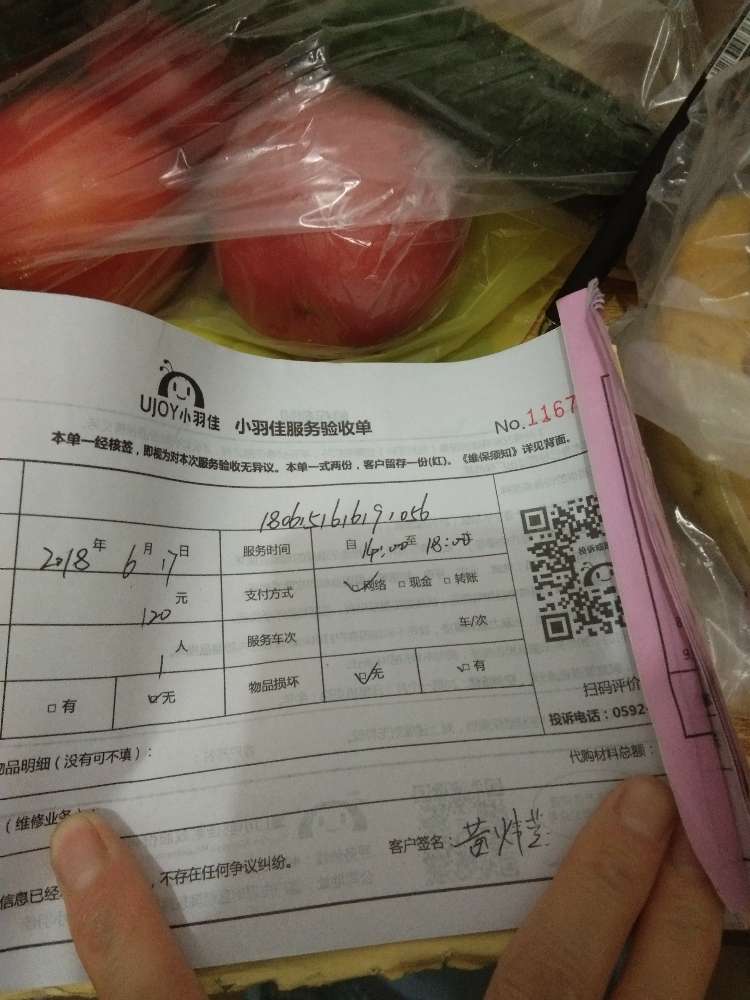 UJOY小羽佳 小羽佳服务验收单 No.1167
本单一经核签，即视为对本次服务验收无异议。本单一式两份，客户留存一份(红)。《维保须知》详见背面。
2018年 6月 17日 服务时间 自 14:00至 18:00
120 元 支付方式 ☑网络 □现金 □转账
1 人 服务车次 车/次
□有 ☑无 物品损坏 ☑无 □有
扫码评价
投诉电话：0592-
品明细（没有可不填）：
代购材料总额：
（维修业务）
客户签名：
信息已经 ，不存在任何争议纠纷。